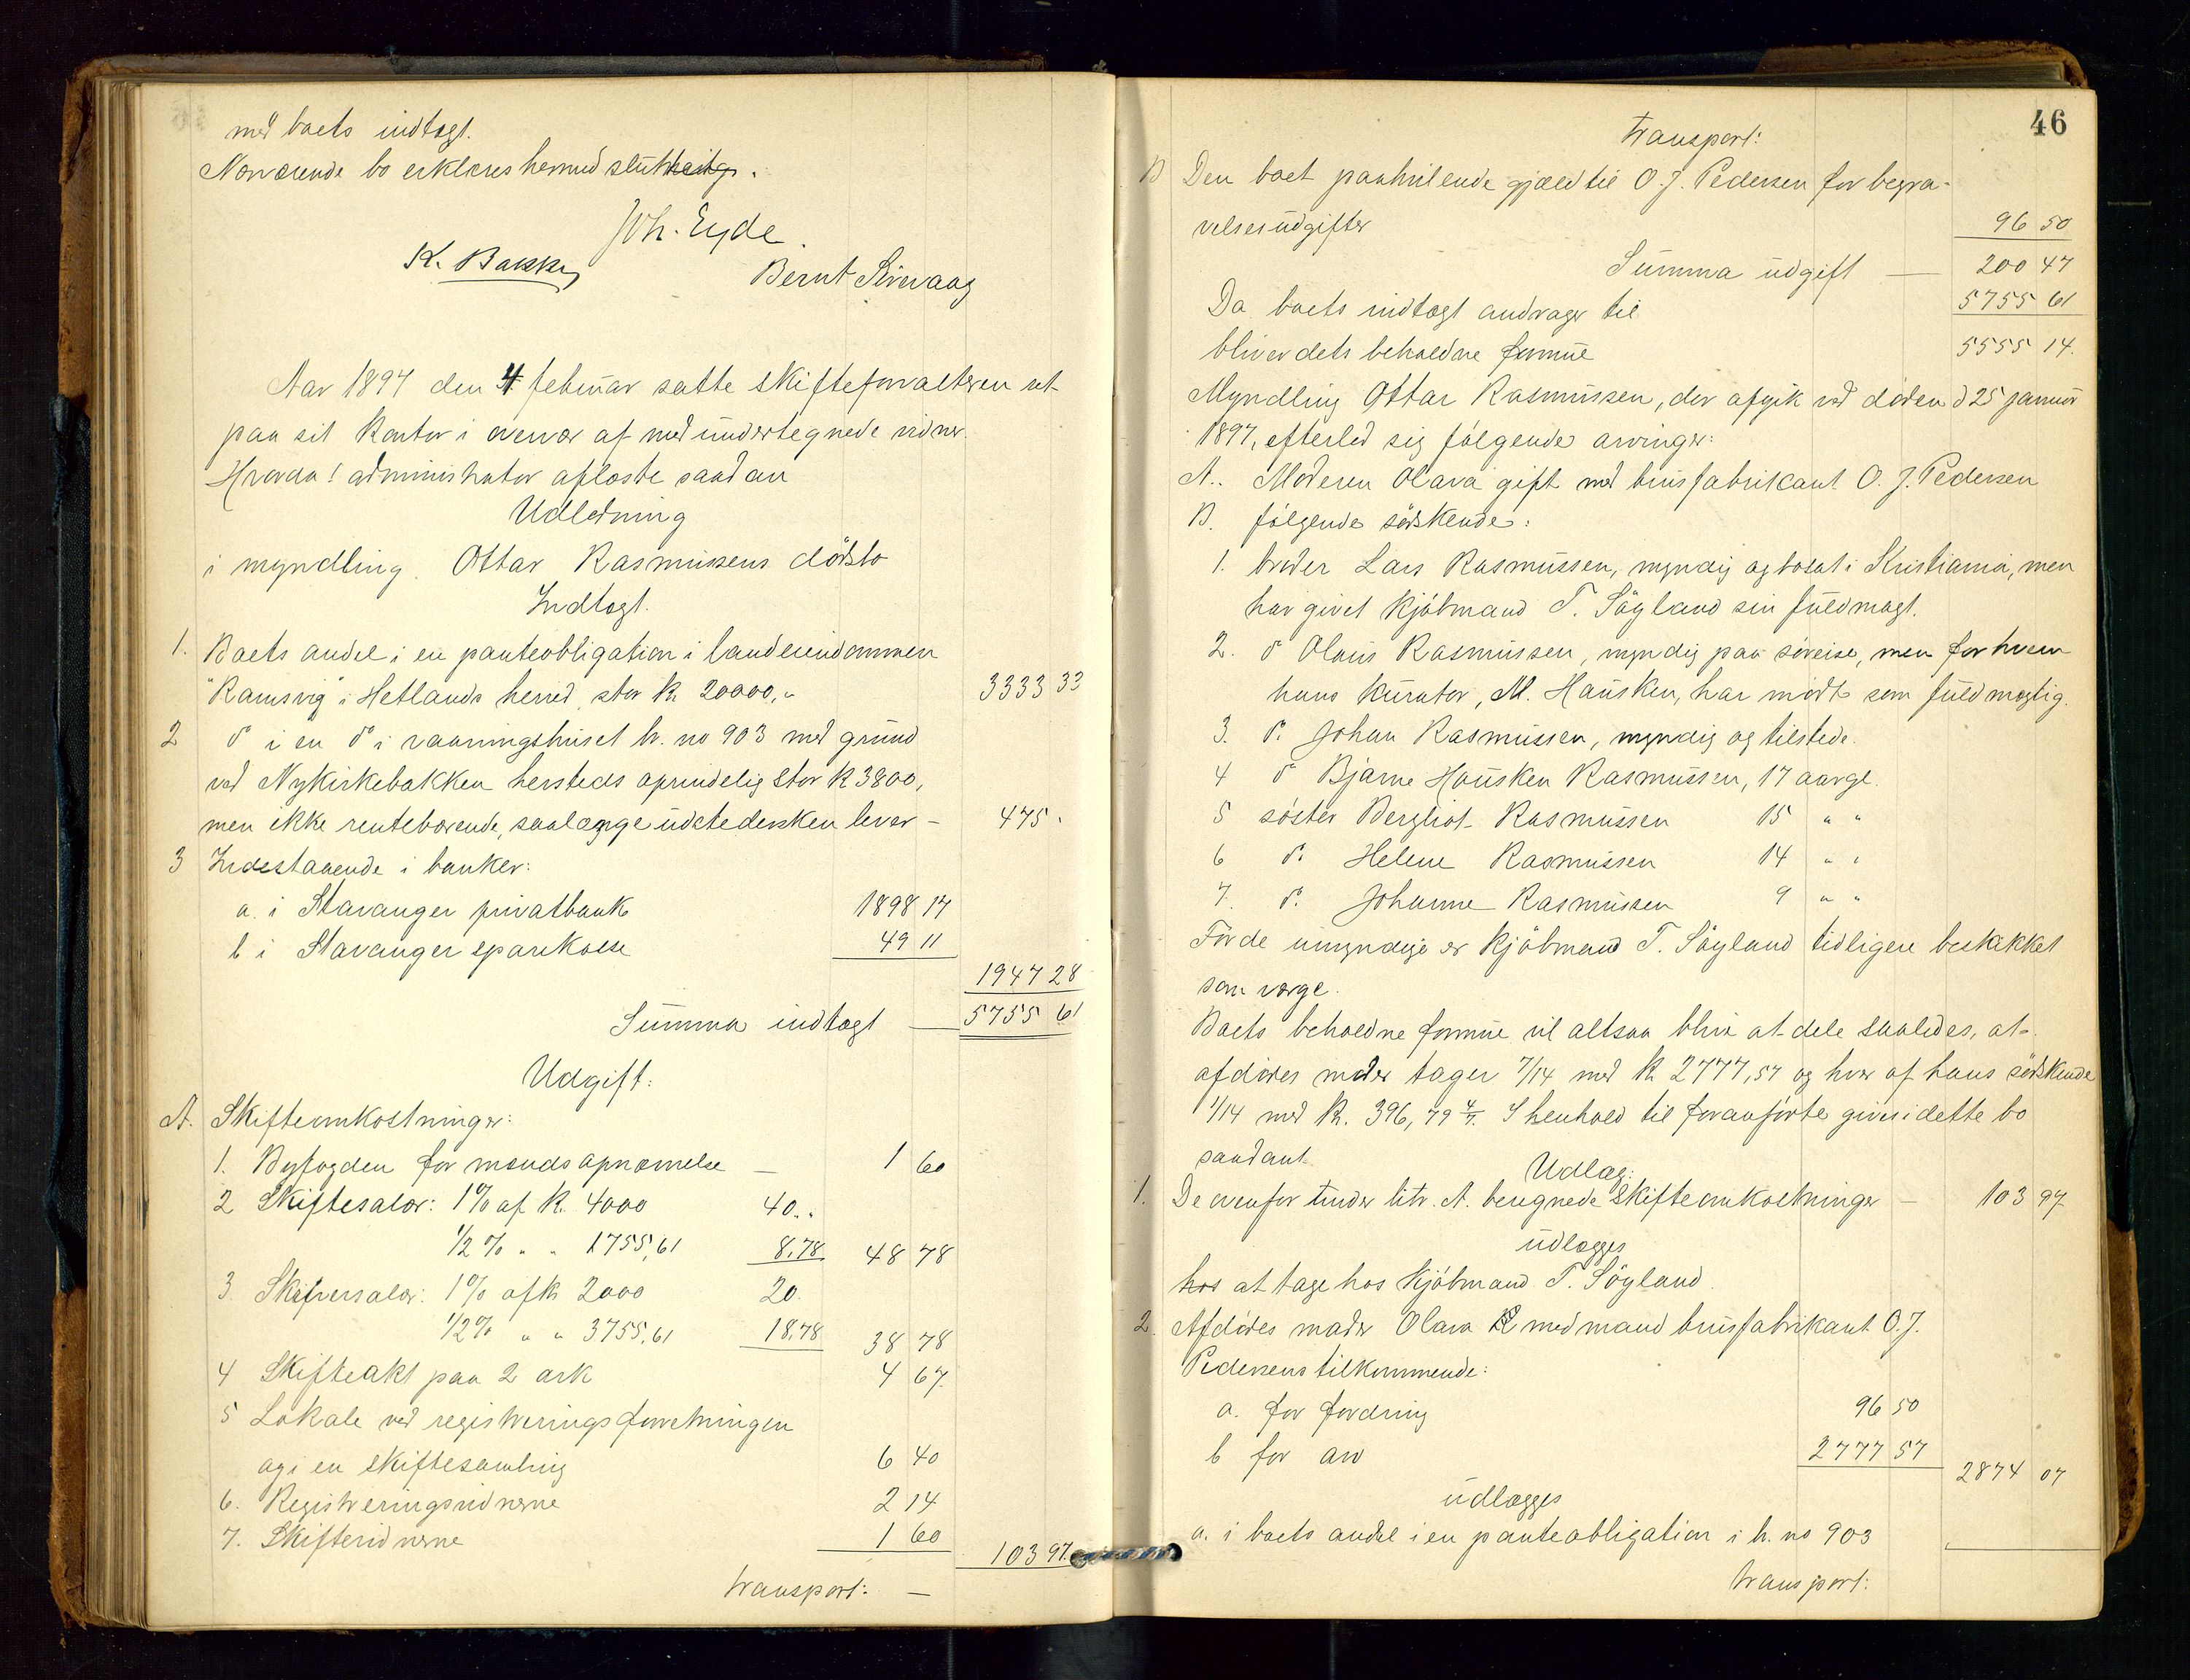 med boets indtægt.
Nærværende bo erklæres hermed sluttet.
Joh. Eyde.
K. Bakke
Bernt Sirevaag
Aar 1897 den 4 februar satte skifteforvalteren ret
paa sit kontor i overvær af medundertegnede vidner.
Hvorda! administrator afløste saadan
Udlodning
i myndling Ottar Rasmussens dødsbo
Indtægt.
1. Boets andel i en panteobligation i landeiendommen
"Ramsvig" i Hetlands herred, stor kr. 20000,- 3333 33
2 do i en do i vaaningshuset hr. no 903 med grund
ved Nykirkebakken hersteds oprindelig stor kr 3800,
men ikke rentebærende, saalænge udstedersken lever - 475 -
3 Indestaaende i banker:
a. i Stavanger privatbank 1898 17
b i Stavanger sparekasse 49 11
1947 28
Summa indtægt 5755 61
Udgift:
A. Skifteomkostninger:
1. Byfogden for mænds opnævnelse — 1 60
2 Skiftesalær: 1% af kr. 4000 40 "
1/2 % " " 1755,61 8,78 48 78
3. Skriversalær: 1% af kr 2000 20.
1/2 % " " 3755,61 18,78 38 78
4 Skifteakt paa 2 ark 4 67
5 Lokale ved registreringsforretningen
og i en skiftesamling 6 40
6. Registreringsvidnerne 2 14
7. Skiftevidnerne 1 60
103 97
transport: —
46
Transport:
B Den boet paahvilende gjæld til O. J. Pedersen for begra-
velsesudgifter 96 50
Summa udgift — 200 47
Da boets indtægt andrager til 5755 61
bliver dets beholdne formue 5555 14.
Myndling Ottar Rasmussen, der afgik ved døden d 25 januar
1897, efterlod sig følgende arvinger:
A. Moderen Olava gift med brusfabrikant O. J. Pedersen
B. følgende sødskende:
1. broder Lars Rasmussen, myndig og bosat i Kristiania, men
har givet kjøbmand T. Søyland sin fuldmagt.
2. do Olaus Rasmussen, myndig paa søreise, men for hvem
hans kurator, M. Hausken, har mødt som fuldmægtig.
3. do Johan Rasmussen, myndig og tilstede.
4 do Bjarne Hausken Rasmussen, 17 aar gl.
5 søster Bergliot Rasmussen 15 " "
6 do Helene Rasmussen 14 " "
7. do Johanne Rasmussen 9 " "
For de umyndige er kjøbmand T. Søyland tidligere beskikket
som værge.
Boets beholdne formue vil altsaa blive at dele saaledes, at
afdødes moder tager 7/14 med kr 2777,57 og hver af hans sødskende
1/14 med kr. 396,79 4/7. I henhold til foranførte gives i dette bo
saadant
Udlæg:
1. De ovenfor under litr. A. beregnede skifteomkostninger — 103 97
udlægges
hos at tage hos kjøbmand T. Søyland.
2. Afdødes moder Olava med mand brusfabrikant O. J.
Pedersens tilkommende:
a. for fordring 96 50
b for arv 2777 57
2874 07
udlægges
a. i boets andel i en panteobligation i h. no 903
transport: